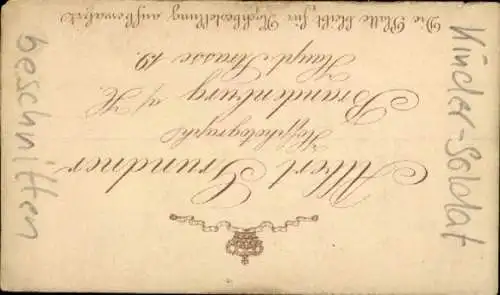 Albert Grundner
Hofphotograph
Brandenburg a/H.
Haupt-Strasse 19.
Die Platte bleibt für Nachbestellung aufbewahrt
Kinder-Soldat
beschnitten